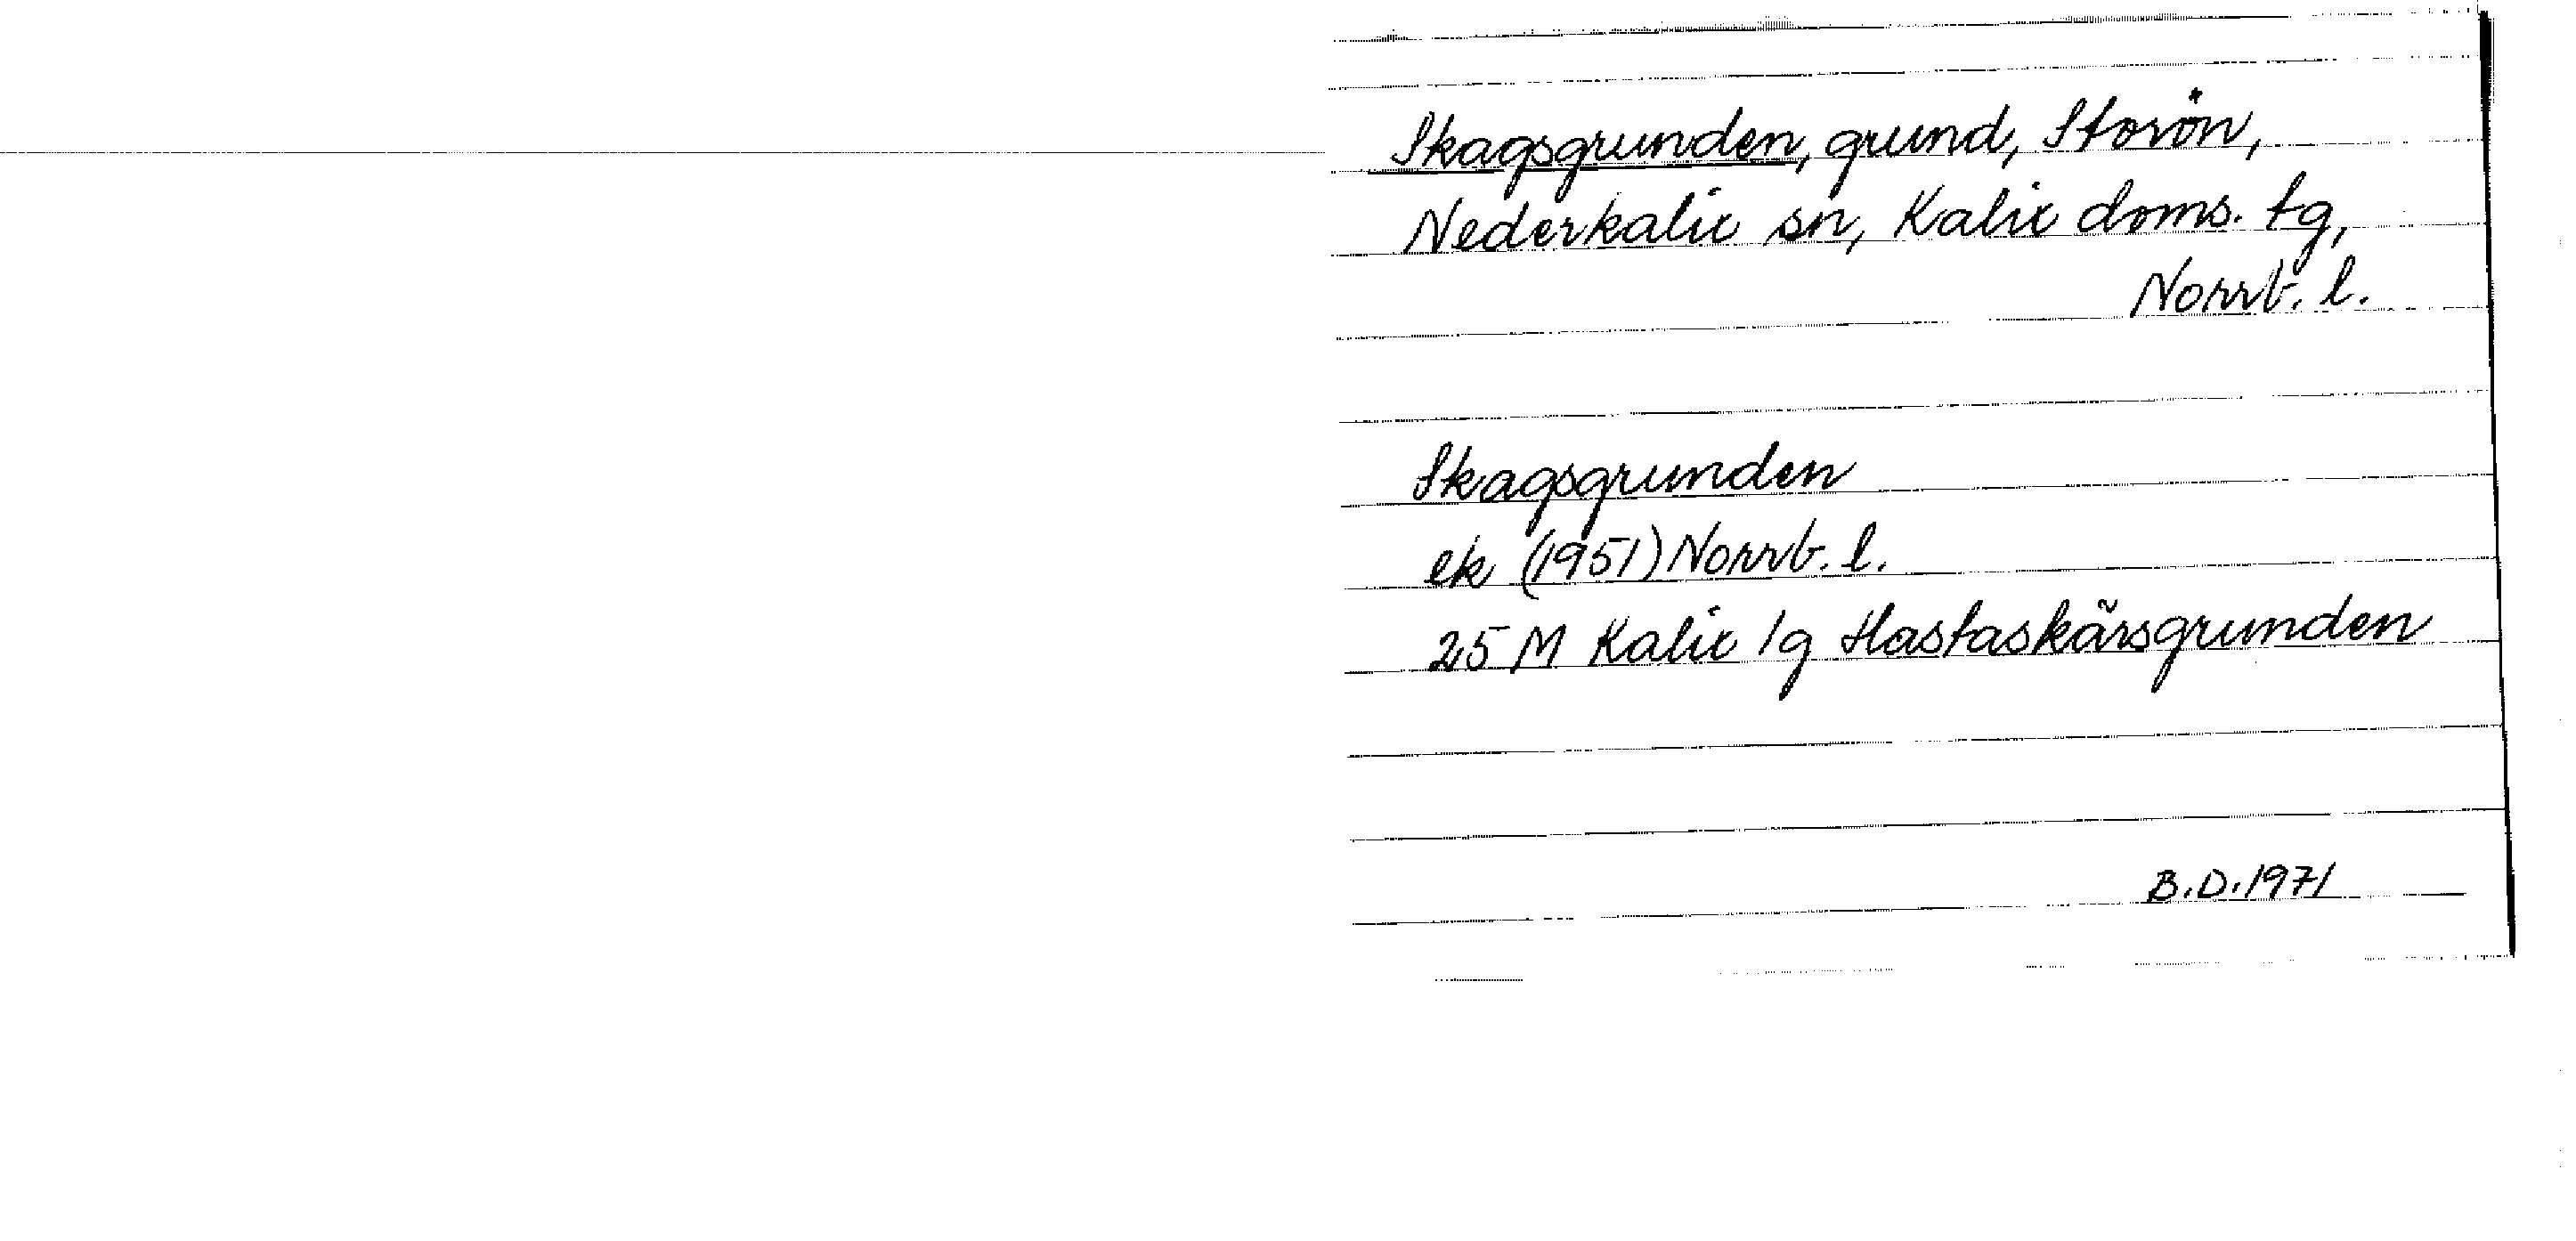 Skagsgrunden, grund, Storön,
Nederkalix sn, Kalix doms. tg,
Norrb. l.
Skagsgrunden
ek (1951) Norrb. l.
25 M Kalix 1g Hastaskärsgrunden
B.D. 1971